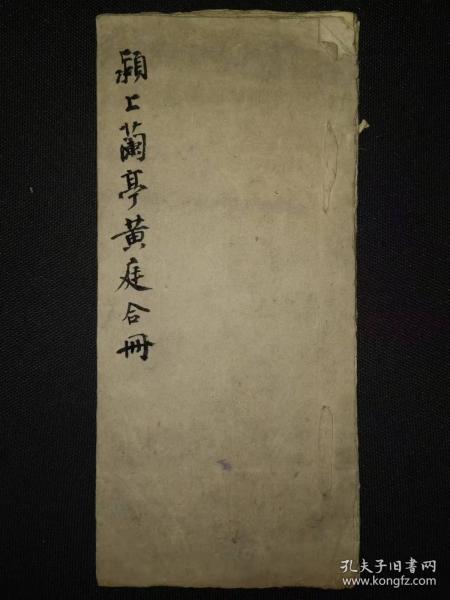 潁上蘭亭黃庭合冊
孔夫子旧书网
www.kongfz.com